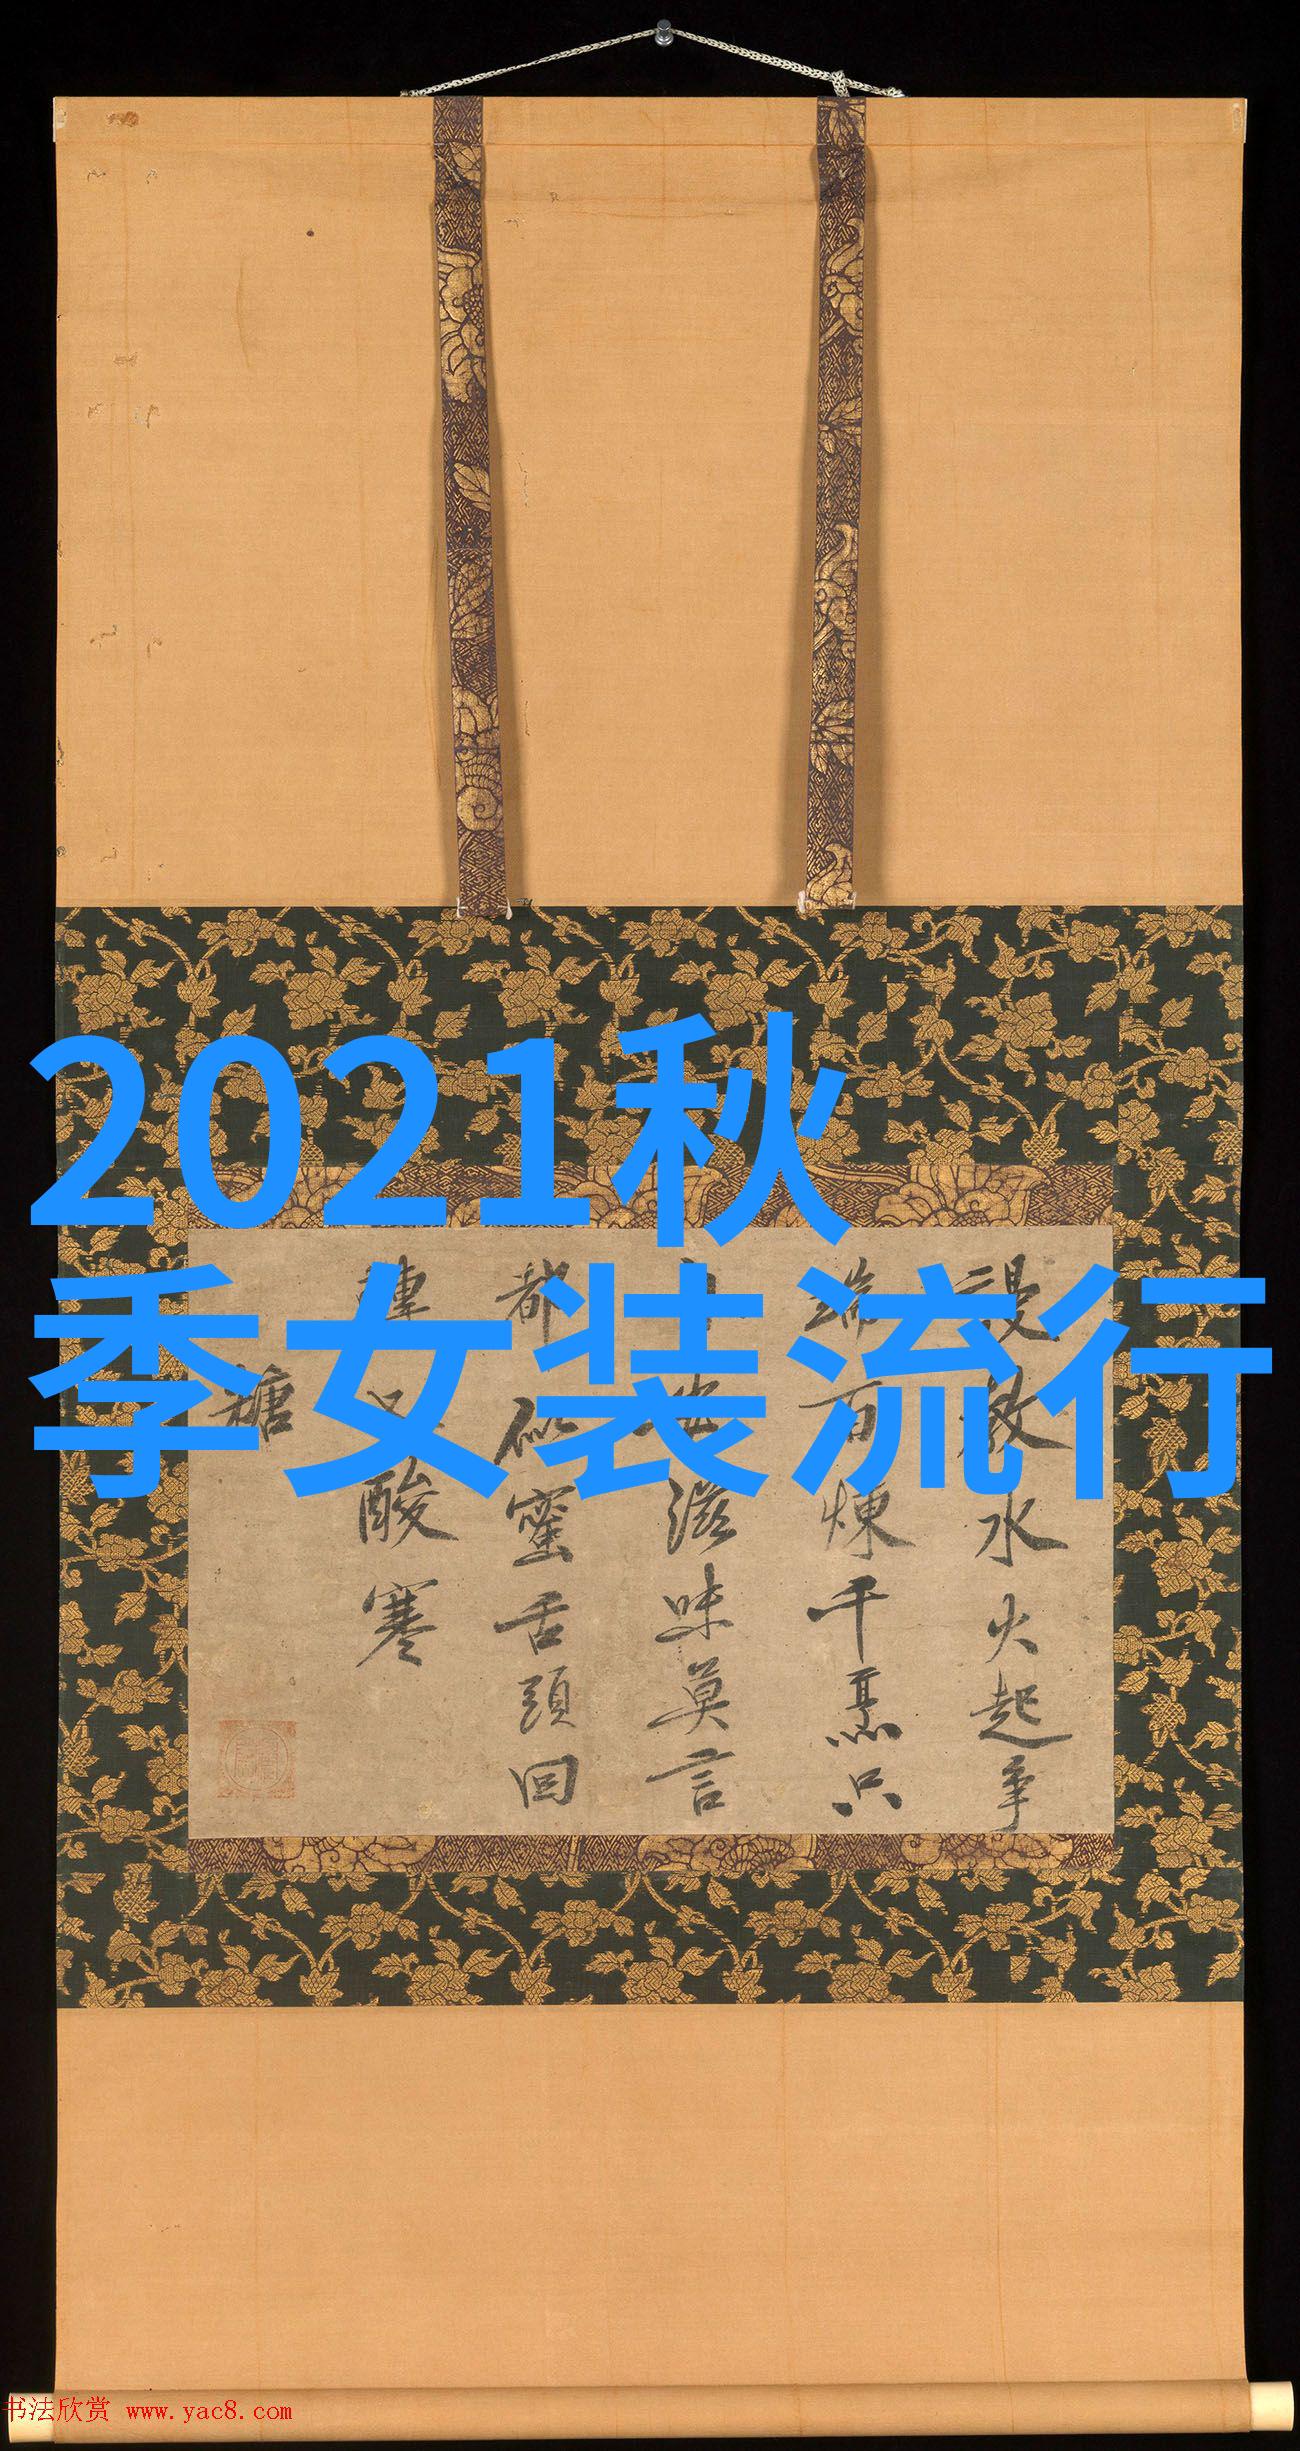 2021秋
季女装流行
謾教水火起爭
端百煉千烹只
滋味莫言
都似蜜舌頭回
轉又酸寒
糖
书法欣赏 www.yac8.com